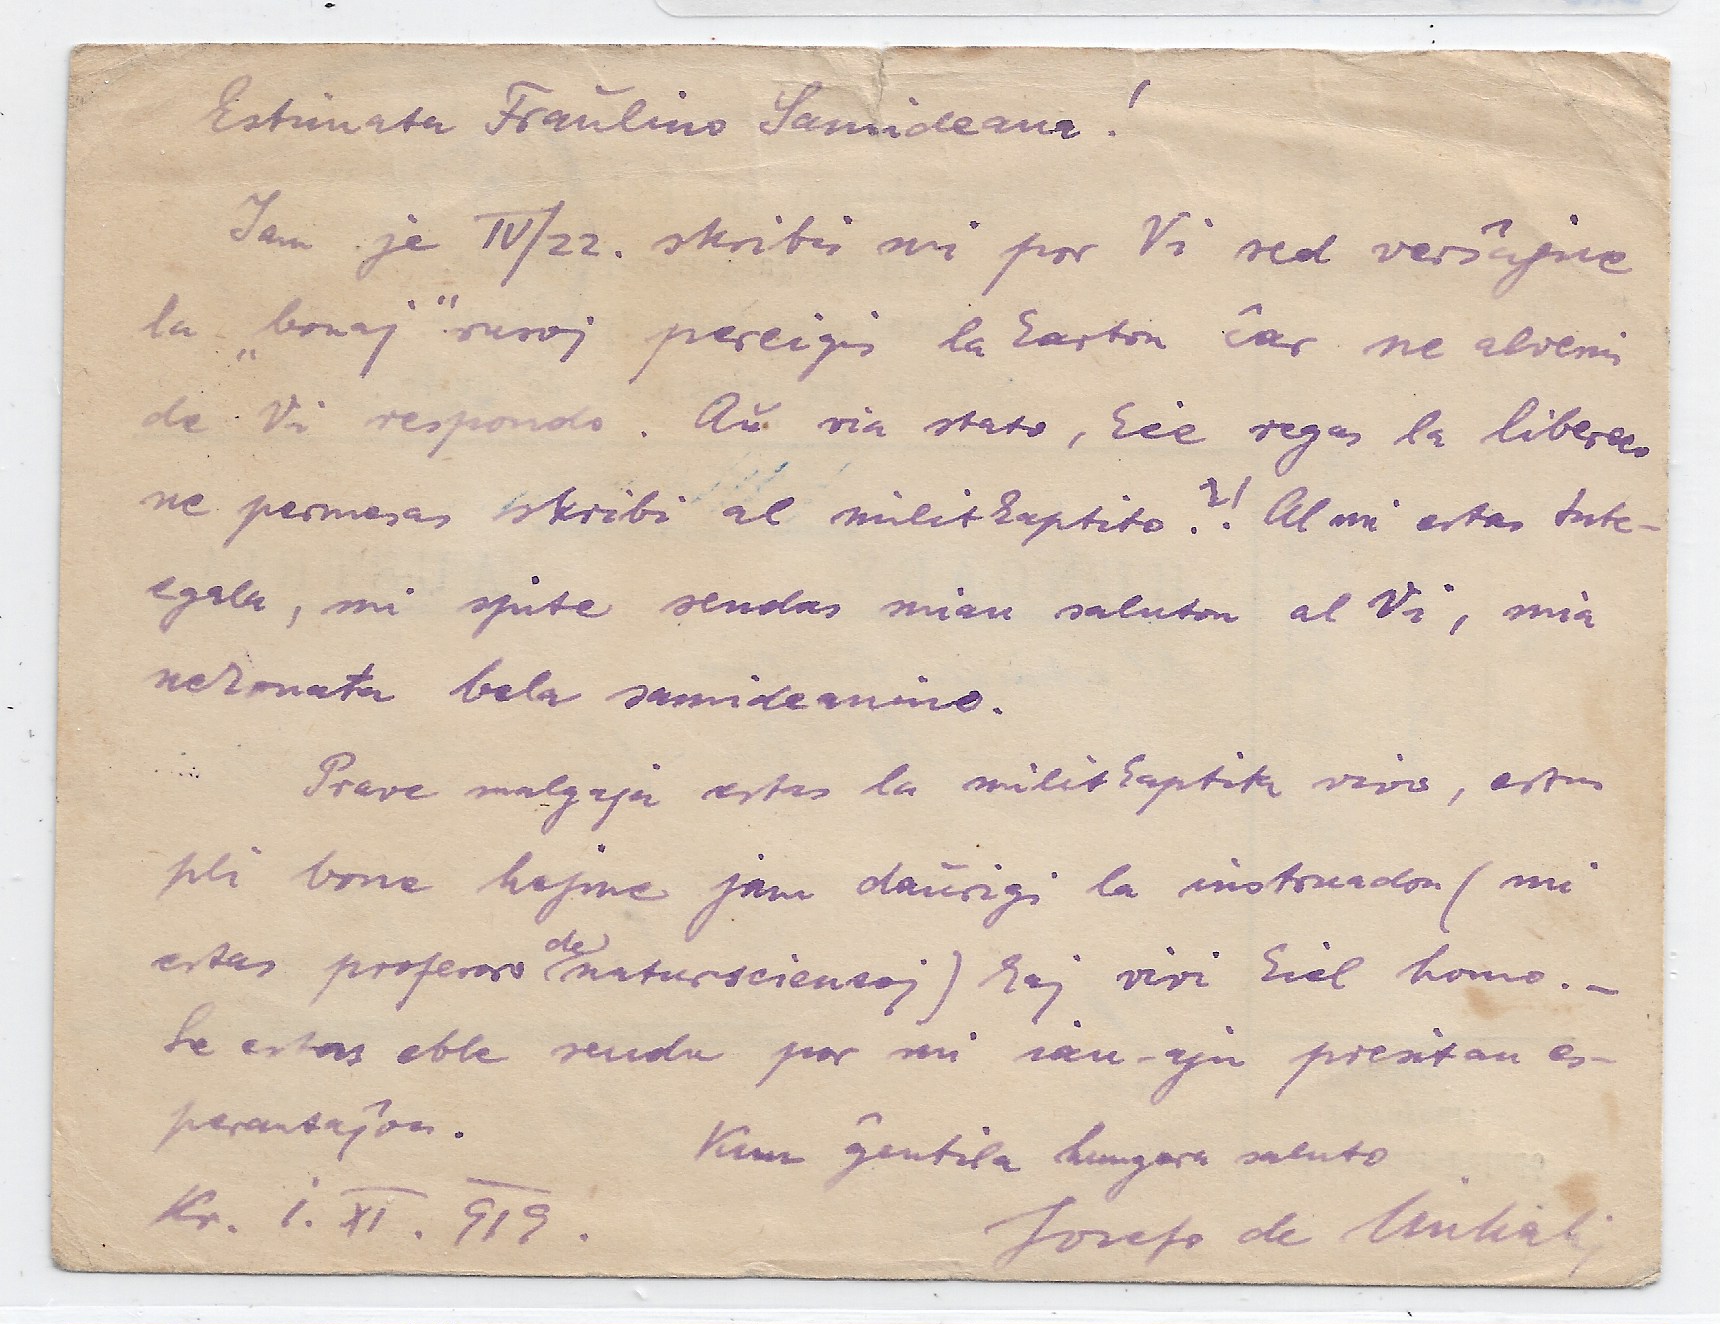 Estimata Fraŭlino Samideana!
Jam je IV/22. skribis mi por Vi sed verŝajne
la „bonaj" rusoj pereigis la karton ĉar ne alvenis
de Vi respondo. Aŭ via stato, kie regas la libereco
ne permesas skribi al militkaptito?! Al mi estas tute-
egala, mi spite sendas mian saluton al Vi, mia
nekonata bela samideanino.
Prave malgaja estas la militkaptita vivo, estus
pli bone hejme jam daŭrigi la instruadon (mi
estas profesoro de natursciencoj) kaj vivi kiel homo. –
Se estas eble sendu por mi ian-ajn presitan es-
perantaĵon.
Kun ĝentila hungara saluto
Kr. 1. XI. 919.
Jozefo de